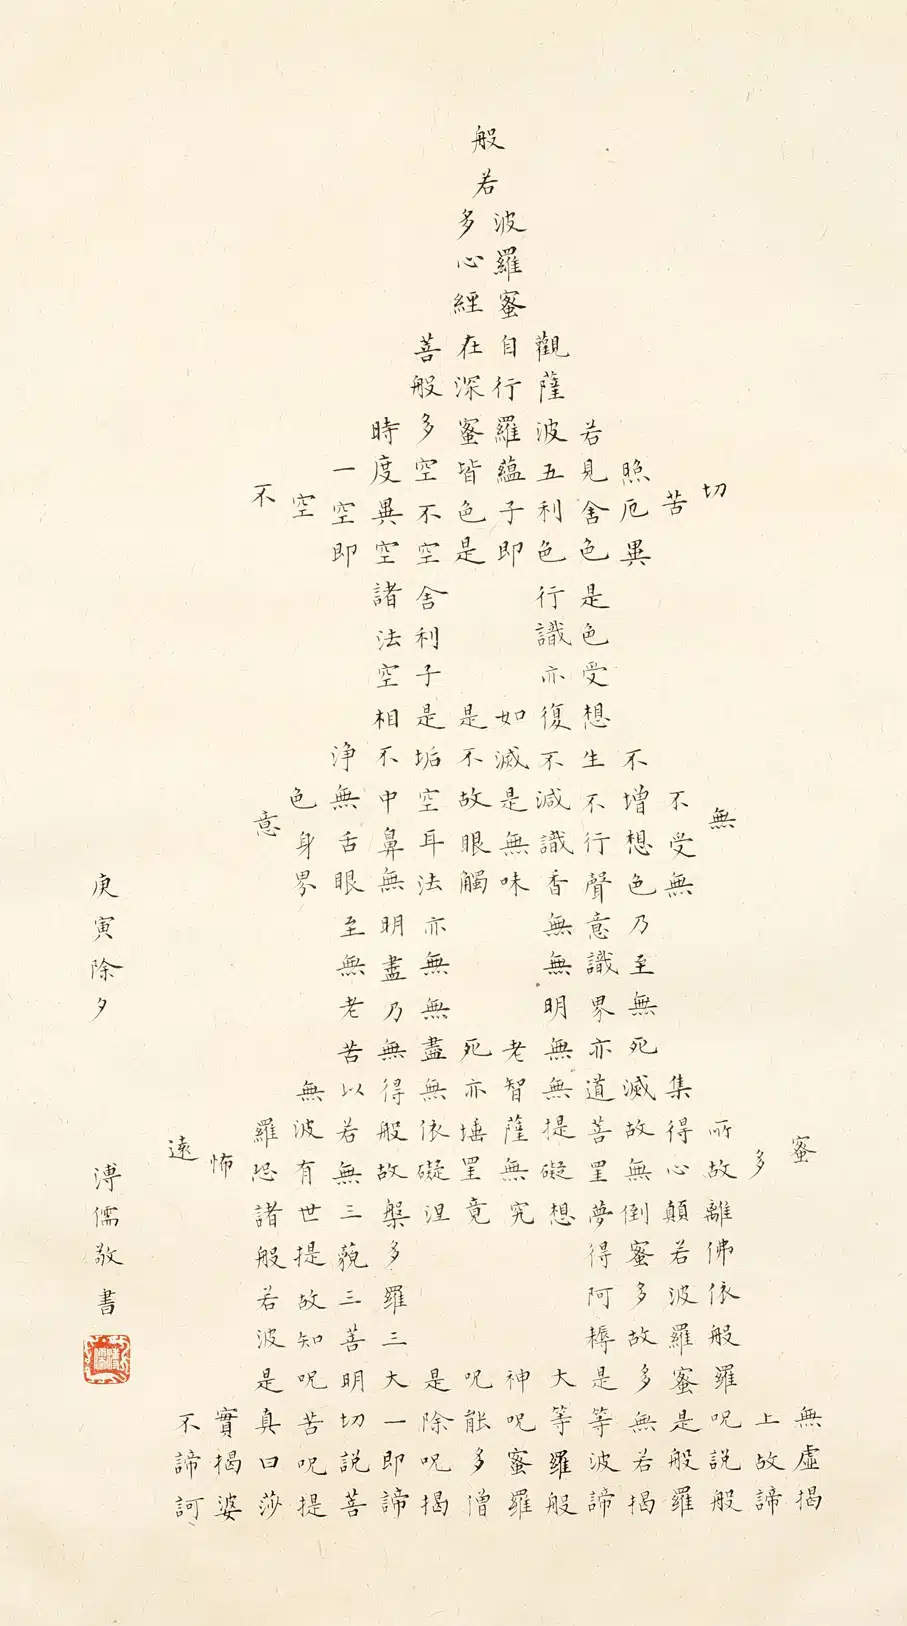 般
若
波羅蜜
多心經
觀自在菩
薩行深般
若波羅蜜多時
照見五蘊皆空度一
切苦厄舍利子色不異空空不
異色色即是空空即
是色受想
行識亦復
如是
舍利子是
諸法空相
不生不滅不垢不淨
不增不減是故空中無色
無受想行識無眼耳鼻舌身意
無色聲香味觸法無眼界
乃至無
意識界
無無明
亦無無
明盡乃
至無老
死亦無老死盡無苦
集滅道無智亦無得以無
所得故菩提薩埵依般若波羅
蜜多故心無罣礙無罣礙故無有恐怖遠
離顛倒夢想究竟涅槃三世諸
佛依般
若波羅
蜜多故
得阿耨
多羅三
藐三菩
提故知
般若波
羅蜜多是大神呪是大明呪是
無上呪是無等等呪能除一切苦真實不
虛故說般若波羅蜜多呪即說呪曰揭諦
揭諦般羅揭諦般羅僧揭諦菩提莎婆訶
庚寅除夕
溥儒敬書